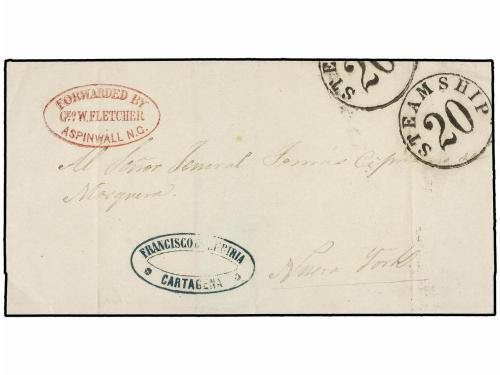 FORWARDED BY
Geo. W. FLETCHER
ASPINWALL N.G.
STE
20
STEAMSHIP
20
Al Señor General Tomás Cipriano de
Mosquera
FRANCISCO
CARTAGENA
Nueva York